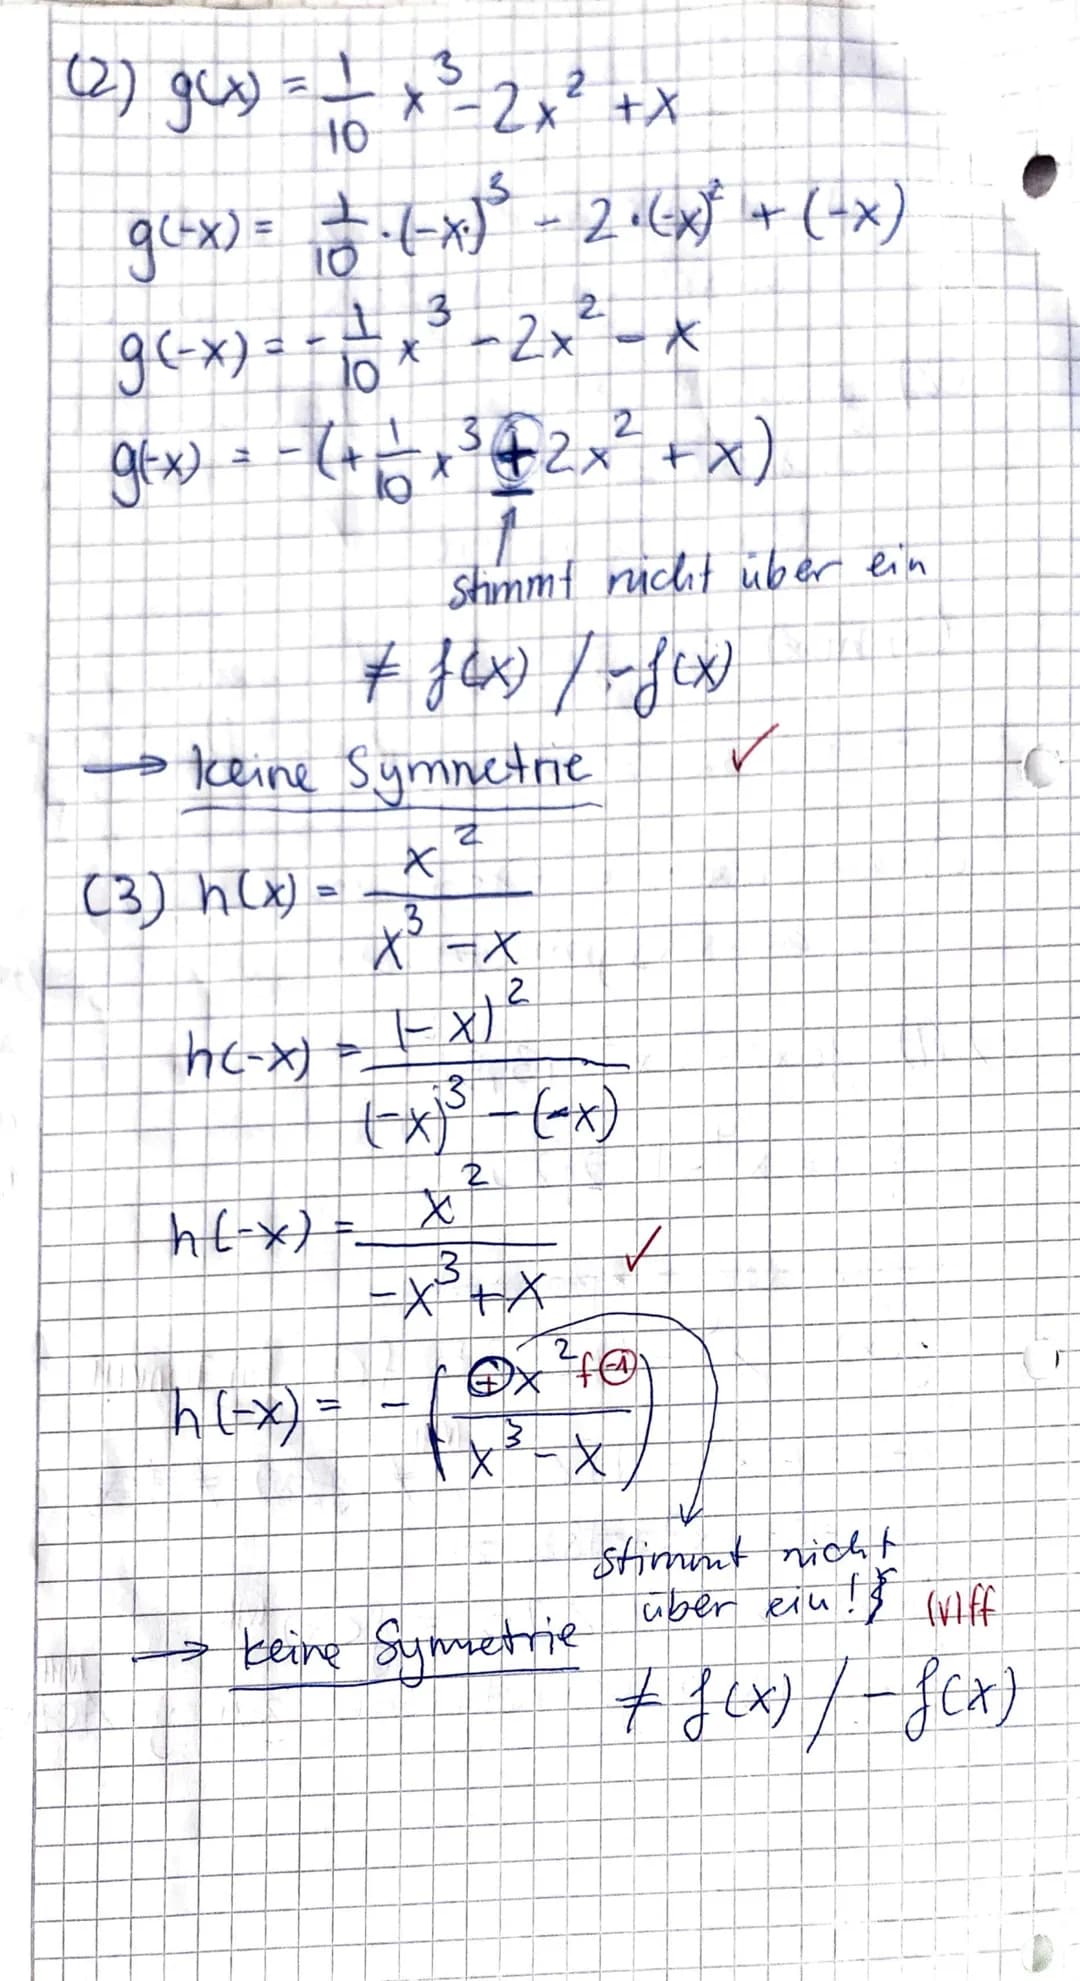 (2) g(x) = 1/10 x³ - 2x² + x
g(-x) = 1/10 · (-x)³ - 2 · (-x)² + (-x)
g(-x) = - 1/10 x³ - 2x² - x
g(-x) = - (+ 1/10 x³ + 2x² + x)
↑
stimmt nicht über ein
≠ f(x) / -f(x)
→ keine Symmetrie ✓
(3) h(x) = x² / (x³ - x)
h(-x) = (-x)² / ((-x)³ - (-x))
h(-x) = x² / (-x³ + x) ✓
h(-x) = - (+x² / (x³ - x)) f (-1)
stimmt nicht
über ein! (√) ff
→ keine Symmetrie
≠ f(x) / - f(x)